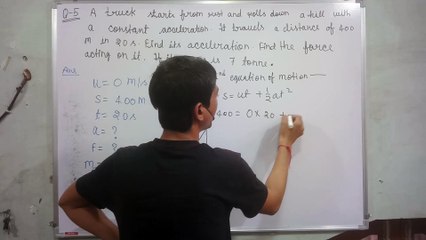 Q-5 A truck starts from rest and rolls down a hill with
a constant acceleration. It travels a distance of 400
m in 20s. Find its acceleration. Find the force
acting on it. If it is 7 tonne.
Ans
u = 0 m/s
nd equation of motion
S = 400 m
S = ut + ½at²
t = 20s
400 = 0 × 20 +
a = ?
f = ?
m =